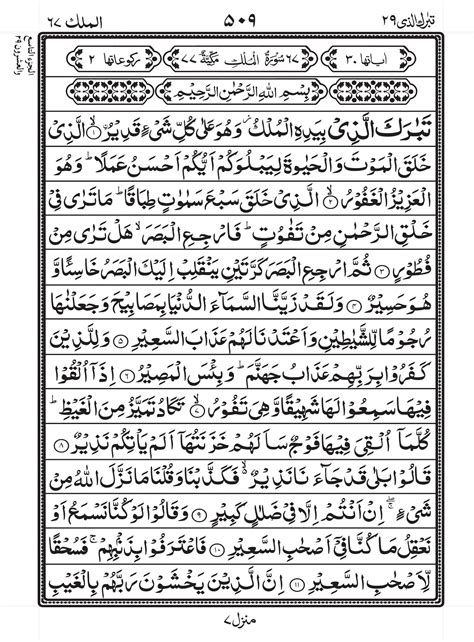 تَبٰرَكَ الَّذِیْ ٢٩ ٥٠٩ الملك ٦٧
الجزء التاسع
والعشرون ٢٩
اٰیَاتُهَا ٣٠ ٦٧ سُوْرَةُ الْمُلْكِ مَكِّیَّةٌ ٧٧ رُكُوْعَاتُهَا ٢
بِسْمِ اللّٰهِ الرَّحْمٰنِ الرَّحِیْمِ
تَبٰرَكَ الَّذِیْ بِیَدِهِ الْمُلْكُ ؗ وَهُوَ عَلٰی كُلِّ شَیْءٍ قَدِیْرُ ۙ﴿١﴾ الَّذِیْ
خَلَقَ الْمَوْتَ وَالْحَیٰوةَ لِیَبْلُوَكُمْ اَیُّكُمْ اَحْسَنُ عَمَلًا ؕ وَهُوَ
الْعَزِیْزُ الْغَفُوْرُ ۙ﴿٢﴾ الَّذِیْ خَلَقَ سَبْعَ سَمٰوٰتٍ طِبَاقًا ؕ مَا تَرٰی فِیْ
خَلْقِ الرَّحْمٰنِ مِنْ تَفٰوُتٍ ؕ فَارْجِعِ الْبَصَرَ ۙ هَلْ تَرٰی مِنْ
فُطُوْرٍ ﴿٣﴾ ثُمَّ ارْجِعِ الْبَصَرَ كَرَّتَیْنِ یَنْقَلِبْ اِلَیْكَ الْبَصَرُ خَاسِئًا وَّ
هُوَ حَسِیْرٌ ﴿٤﴾ وَلَقَدْ زَیَّنَّا السَّمَآءَ الدُّنْیَا بِمَصَابِیْحَ وَجَعَلْنٰهَا
رُجُوْمًا لِّلشَّیٰطِیْنِ وَاَعْتَدْنَا لَهُمْ عَذَابَ السَّعِیْرِ ﴿٥﴾ وَلِلَّذِیْنَ
كَفَرُوْا بِرَبِّهِمْ عَذَابُ جَهَنَّمَ ؕ وَبِئْسَ الْمَصِیْرُ ﴿٦﴾ اِذَاۤ اُلْقُوْا
فِیْهَا سَمِعُوْا لَهَا شَهِیْقًا وَّهِیَ تَفُوْرُ ۙ﴿٧﴾ تَكَادُ تَمَیَّزُ مِنَ الْغَیْظِ ؕ
كُلَّمَاۤ اُلْقِیَ فِیْهَا فَوْجٌ سَاَلَهُمْ خَزَنَتُهَاۤ اَلَمْ یَاْتِكُمْ نَذِیْرٌ ﴿٨﴾
قَالُوْا بَلٰی قَدْ جَآءَنَا نَذِیْرٌ ۙ۬ فَكَذَّبْنَا وَقُلْنَا مَا نَزَّلَ اللّٰهُ مِنْ
شَیْءٍ ۖۚ اِنْ اَنْتُمْ اِلَّا فِیْ ضَلٰلٍ كَبِیْرٍ ﴿٩﴾ وَقَالُوْا لَوْ كُنَّا نَسْمَعُ اَوْ
نَعْقِلُ مَا كُنَّا فِیْۤ اَصْحٰبِ السَّعِیْرِ ﴿١٠﴾ فَاعْتَرَفُوْا بِذَنْۢبِهِمْ ۚ فَسُحْقًا
لِّاَصْحٰبِ السَّعِیْرِ ﴿١١﴾ اِنَّ الَّذِیْنَ یَخْشَوْنَ رَبَّهُمْ بِالْغَیْبِ
منزل ٧